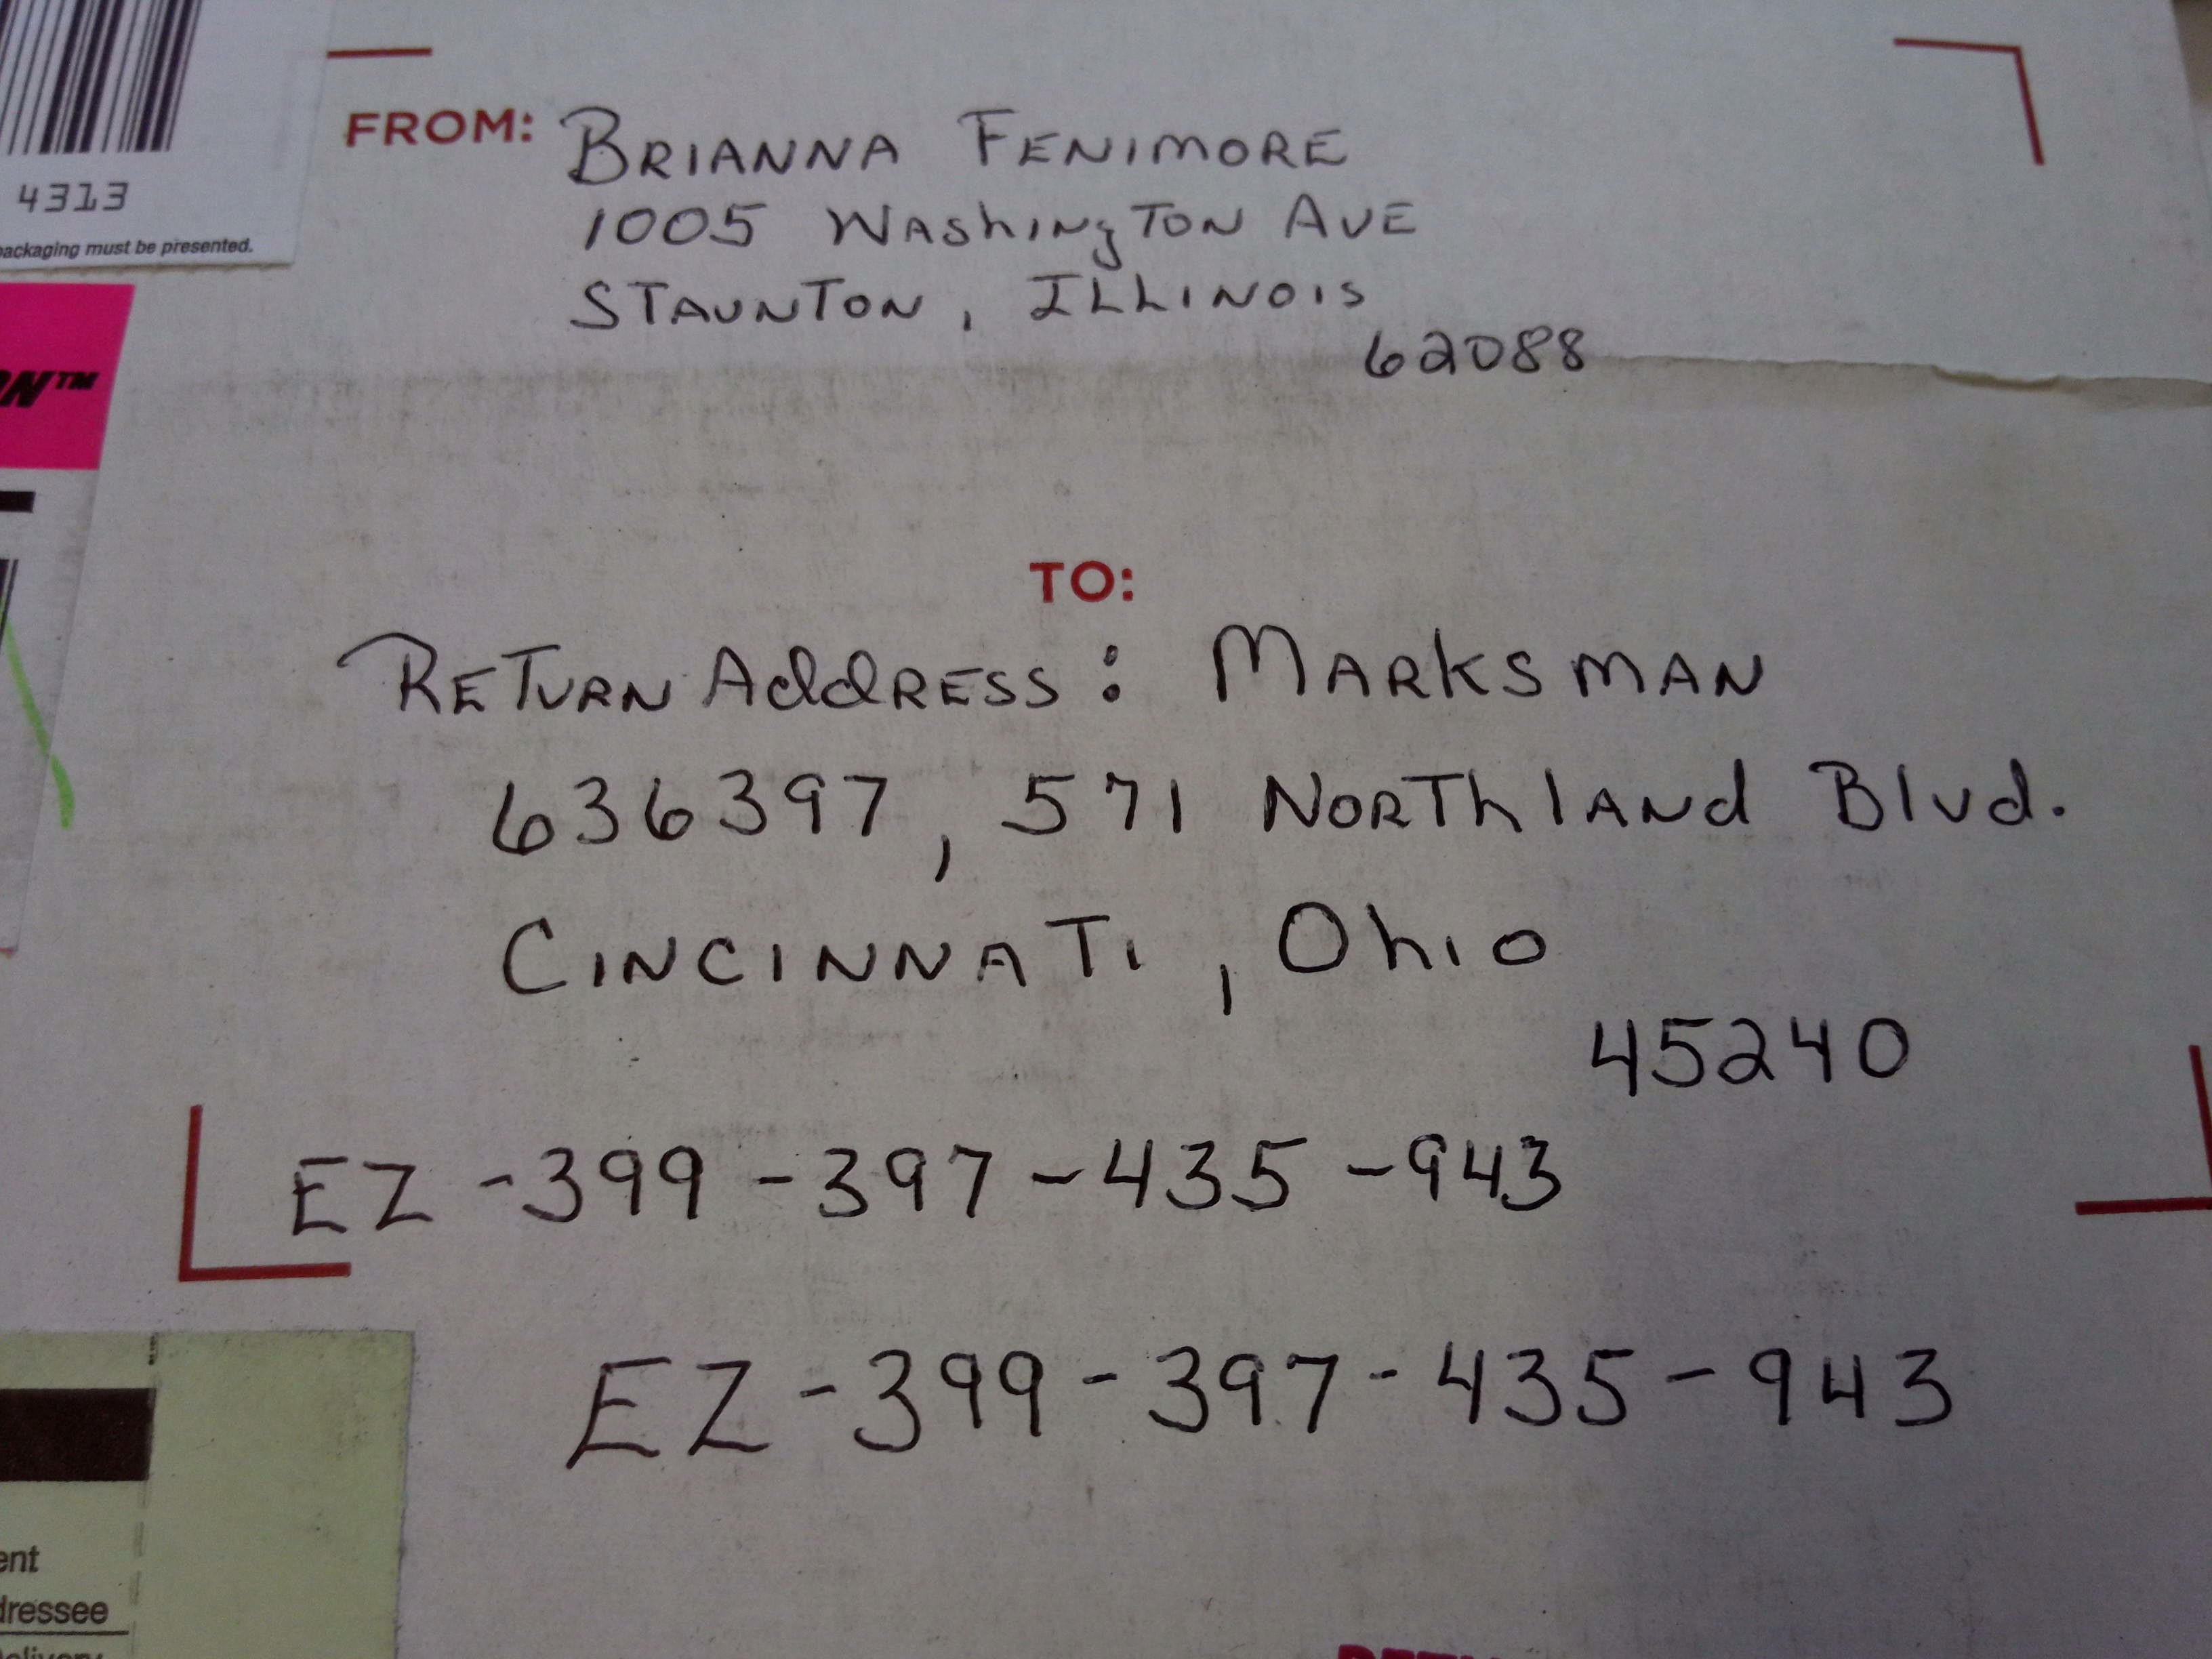 4313
packaging must be presented.
FROM: BRIANNA FENIMORE
1005 WAShINgTON AVE
STAUNTON, ILLINOIS
62088
TO:
RETURN AddRESS: MARKSMAN
636397, 571 NORThlANd Blvd.
CINCINNATI, OhIO
45240
EZ-399-397-435-943
EZ-399-397-435-943